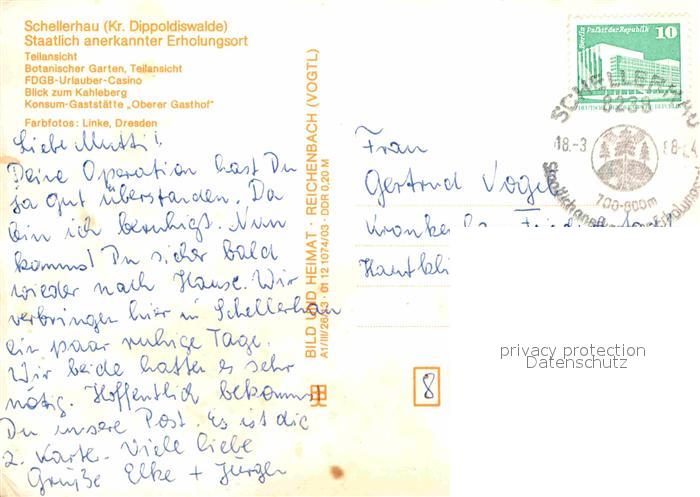 Schellerhau (Kr. Dippoldiswalde)
Staatlich anerkannter Erholungsort
Teilansicht
Botanischer Garten, Teilansicht
FDGB-Urlauber-Casino
Blick zum Kahleberg
Konsum-Gaststätte „Oberer Gasthof"
Farbfotos: Linke, Dresden
Liebe Mutti!
Deine Operation hast Du
ja gut überstanden. Da
bin ich beruhigt. Nun
kommst Du sicher bald
wieder nach Hause. Wir
verbringen hier in Schellerhau
ein paar ruhige Tage.
Wir beide hatten es sehr
nötig. Hoffentlich bekommst
Du unsere Post. Es ist die
2. Karte. Viele liebe
Grüße Elke + Jürgen
BILD UND HEIMAT · REICHENBACH (VOGTL)
01 12 1074/03 · DDR 0,20 M
Berlin Palast der Republik
10
SCHELLERHAU
8238
18.-3
700-800m
Frau
Gertrud Vogel
8
privacy protection
Datenschutz